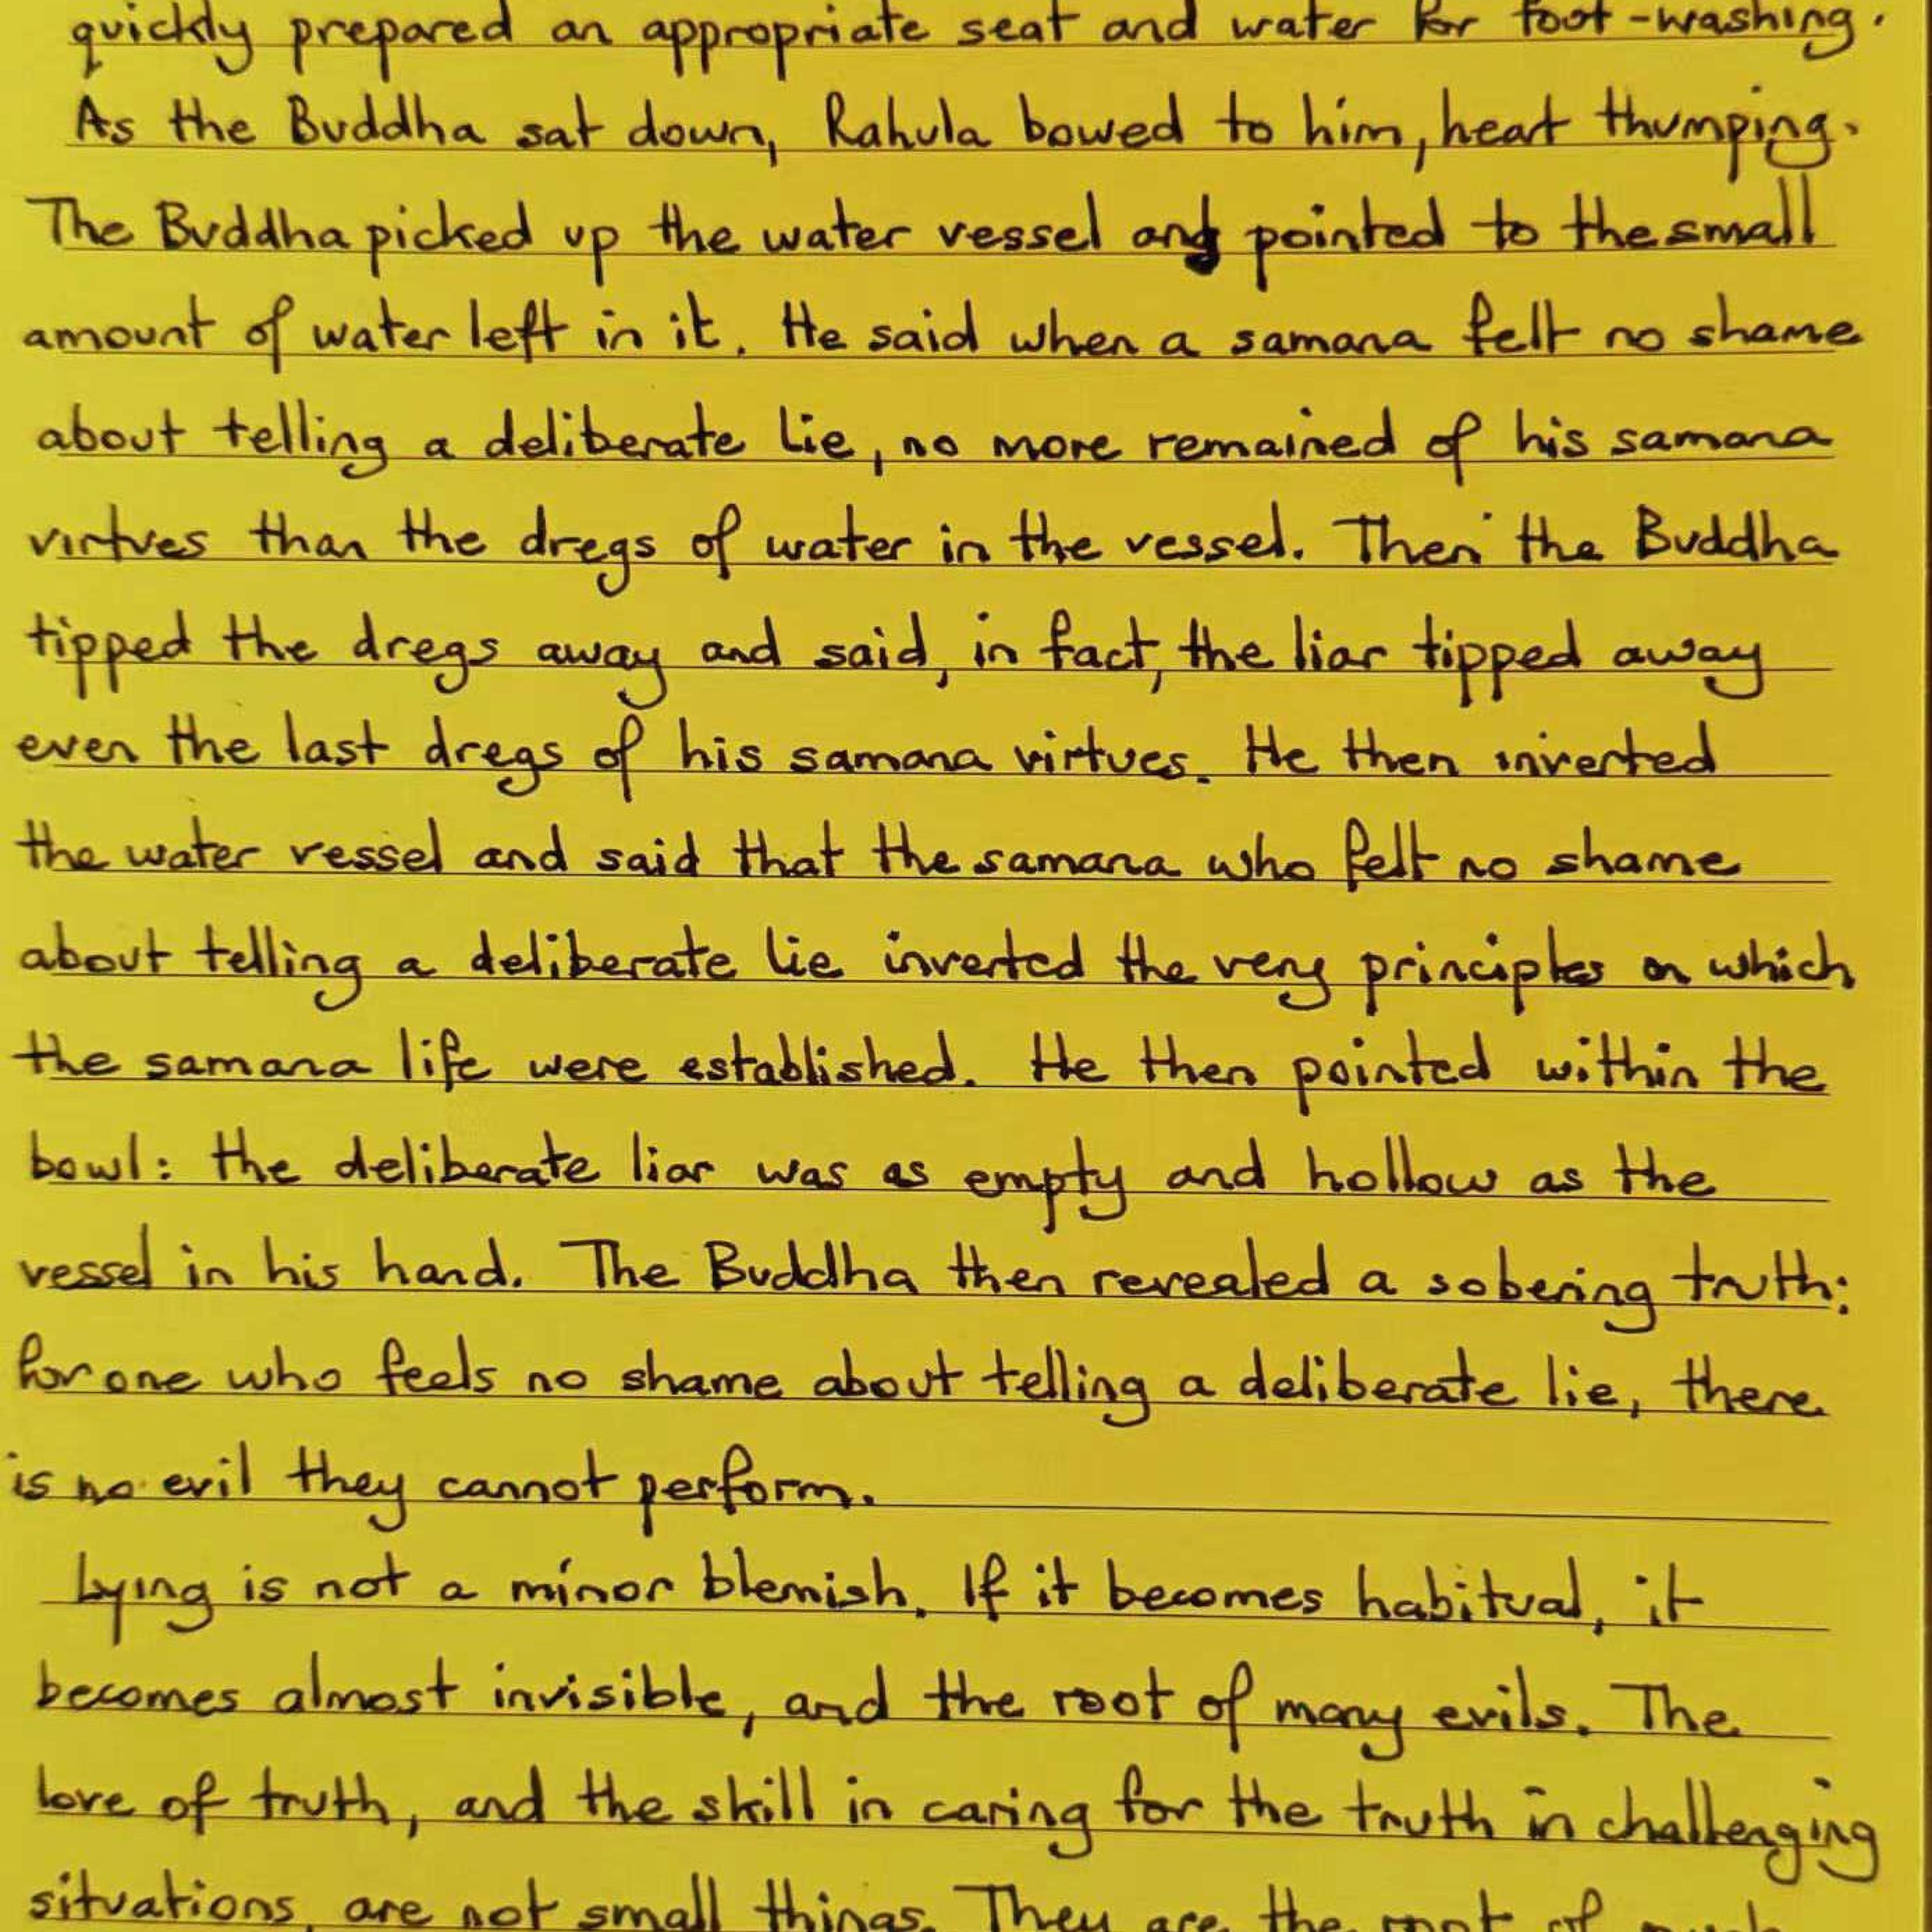 quickly prepared an appropriate seat and water for foot-washing.
As the Buddha sat down, Rahula bowed to him, heart thumping.
The Buddha picked up the water vessel and pointed to the small
amount of water left in it. He said when a samana felt no shame
about telling a deliberate lie, no more remained of his samana
virtues than the dregs of water in the vessel. Then the Buddha
tipped the dregs away and said, in fact, the liar tipped away
even the last dregs of his samana virtues. He then inverted
the water vessel and said that the samana who felt no shame
about telling a deliberate lie inverted the very principles on which
the samana life were established. He then pointed within the
bowl: the deliberate liar was as empty and hollow as the
vessel in his hand. The Buddha then revealed a sobering truth:
for one who feels no shame about telling a deliberate lie, there
is no evil they cannot perform.
Lying is not a minor blemish. If it becomes habitual, it
becomes almost invisible, and the root of many evils. The
love of truth, and the skill in caring for the truth in challenging
situations, are not small things. They are the root of